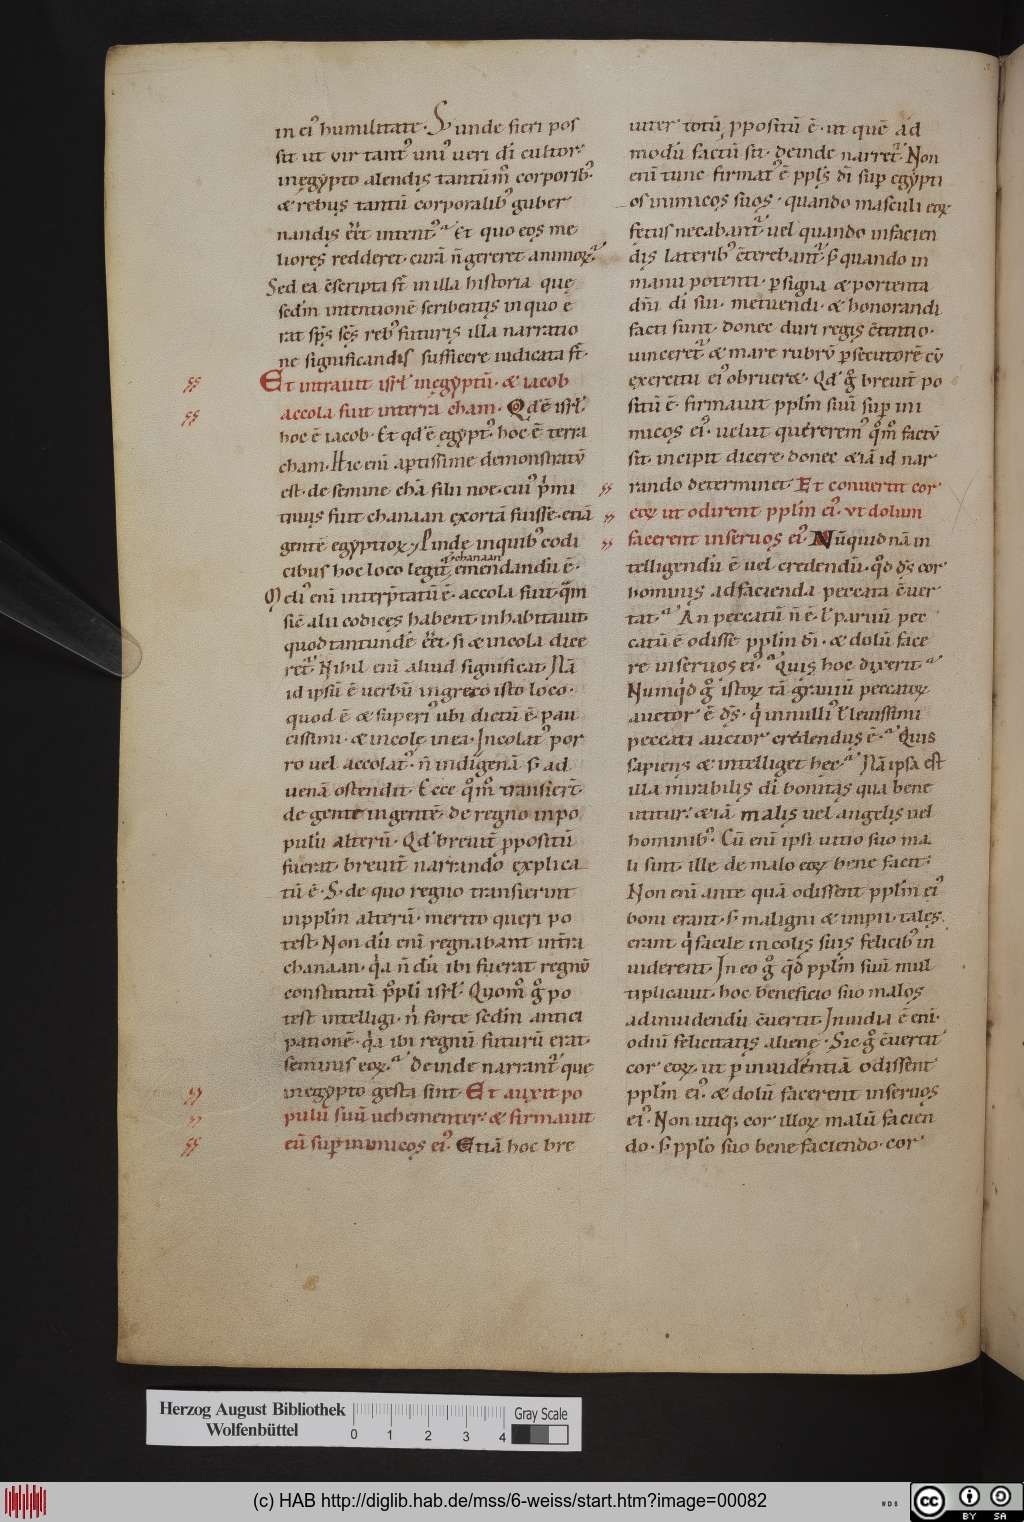 in ei᾽ humilitate· S unde fieri pos
sit ut vir tant᾽ uni᾽ ueri dı̄ cultor·
in ęgẏpto alendis tantūm̊ corporib᾽
& rebus tantū corporalib᾽ guber
nandis ēēt intent᾽· Et quo eos me
liores redderet curā n̄ gereret animoꝝ·
Sed ea c̄scripta st̄ in illa historia quę
sedm̄ intentionē scribentis in quo e
rat sp̄s sc̄s reb᾽ futuris illa narratio
ne significandis sufficere iudicata st̄·
Et intrauit isrl̄ in ęgẏptū· & iacob
accola fuit in terra cham· Qd̄ ē isrl̄
hoc ē iacob· Et qd̄ ē ęgẏpt᾽ hoc ē terra
cham· Hic enī aptissime demonstratū
est· de semine chā filii noe· cui᾽ p̄mi
tiuus fuit chanaan exortā fuisse· etiā
gentē egẏptioꝝ· Unde in quib᾽ codi
cibus hoc loco legit᾽ chanaan, emendandū ē·
Meli᾽ enī interp̄tatū ē· accola fuit· qm̄
sic̄ alii codices habent inhabitauit·
quod tantundē ēēt· si & incola dice
ret᾽· Nihil enī aliud significat· Nā
id ipsū ē uerbū in greco isto loco·
quod ē & superi᾽ ubi dictū ē· pau
cissimi· & incolę in ea· Incolat᾽ por
ro uel accolat᾽· n̄ indigenā s; ad
uenā ostendit· Ecce qm̊ transier̄t·
de gente in gentē· de regno in po
pulū alterū· Qd̄ breuit̄ ppositū
fuerat breuit̄ narrando explica
tū ē· S; de quo regno transierint
in pplm̄ alterū· merito queri po
test· Non dū enī regnabant intra
chanaan· qa n̄ dū ibi fuerat regnū
constitutū ppli isrl̄· Quom̊ g̊ po
test intelligi· n forte sedm̄ antici
pationē· qa ibi regnū futurū erat·
seminis eoꝝ· Deinde narrant᾽ que
in egẏpto gesta sint· Et auxit po
pulū suū uehementer· & firmauit
eū sup inimicos ei᾽· Etiā hoc bre
uiter totū ppositū ē· ut quē ad
modū factū sit· deinde narret᾽· Non
enī tunc firmat᾽ ē ppls̄ dı̄ sup egẏpti
os inimicos suos· quando masculi eoꝝ
fetus necabant᾽· uel quando in facien
dis laterib᾽ c̄terebant᾽· s; quando in
manu potenti· p signa & portenta
dn̄i dı̄ sui· metuendi· & honorandi
facti sunt· donec duri regis c̄tentio·
uinceret᾽· & mare rubrū psecutorē cū
exercitu ei᾽ obruer&· Qd̄ g̊ breuit̄ po
sitū ē· firmauit pplm̄ suū sup ini
micos ei᾽· uelut quererem᾽ qm̊ factū
sit· incipit dicere· donec &iā id nar
rando determinet· Et conuertit cor
eoꝝ ut odirent pplm̄ ei᾽· vt dolum
facerent in seruos ei᾽· Nūquid nā in
telligendū ē uel credendū· qd̄ ds̄ cor
hominis ad facienda peccata c̄uer
tat· An peccatū n̄ ē· l̄ paruū pec
catū ē odisse pplm̄ dı̄· & dolū face
re in seruos ei᾽· Quis hoc dixerit·
Numqd g̊ istoꝝ tā grauiū peccatoꝝ
auctor ē ds̄· qi nulli᾽ l̄ leuissimi
peccati auctor credendus ē· Quis
sapiens & intelliget hec· Nā ipsa est
illa mirabilis dı̄ bonitas qua bene
utitur· &iā malis uel angelis uel
hominib᾽· Cū enī ipsi uitio suo ma
li sint· ille de malo eoꝝ bene facit·
Non enī ante quā odissent pplm̄ ei᾽
boni erant· s; maligni & impii· tales
erant q facile incolis suis felicib᾽ in
uiderent· In eo g̊ qd̄ pplm̄ suū mul
tiplicauit· hoc beneficio suo malos
ad inuidendū c̄uertit· Inuidia ē enī·
odiū felicitatis alienę· Sic g̊ c̄uertit
cor eoꝝ· ut p inuidentiā odissent
pplm̄ ei᾽· & dolū facerent in seruos
ei᾽· Non utiq; cor illoꝝ malū facien
do· s; pplo suo bene faciendo· cor
Herzog August Bibliothek
Wolfenbüttel
0 1 2 3 4
Gray Scale
(c) HAB http://diglib.hab.de/mss/6-weiss/start.htm?image=00082
WDB
cc
BY SA